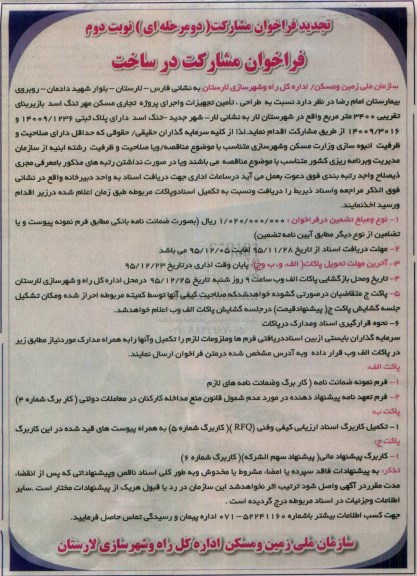 تجدید فراخوان مشارکت( دومرحله ای ) نوبت دوم
فراخوان مشارکت در ساخت
سازمان ملی زمین ومسکن/ اداره کل راه وشهرسازی لارستان به نشانی فارس - لارستان - بلوار شهید دادمان - روبروی
بیمارستان امام رضا در نظر دارد نسبت به طراحی ، تأمین تجهیزات واجرای پروژه تجاری مسکن مهر تنگ اسد بازیربنای
تقریبی ۳۴۰۰ متر مربع واقع در شهرستان لار به نشانی لار- شهر جدید -تنگ اسد دارای پلاک ثبتی ۱۴۰۰۹/۱۲۳۶ و
۱۴۰۰۹/۳۰۱۶ از طریق مشارکت اقدام نماید.لذا از کلیه سرمایه گذاران حقیقی/ حقوقی که حداقل دارای صلاحیت و
ظرفیت انبوه سازی وزارت مسکن وشهرسازی متناسب با موضوع مناقصه/ویا صلاحیت و ظرفیت رشته ابنیه از سازمان
مدیریت وبرنامه ریزی کشور متناسب با موضوع مناقصه می باشند ویا در صورت نداشتن رتبه های مذکور بامعرفی مجری
ذیصلاح واجد رتبه بندی فوق دعوت بعمل می آید درساعات اداری جهت دریافت اسناد به واحد دبیرخانه واقع در نشانی
فوق الذکر مراجعه واسناد ذیربط را دریافت ونسبت به تکمیل اسنادوپاکات مربوطه طبق زمان اعلام شده درزیر اقدام
ورسید اخذنمایند.
۱- نوع ومبلغ تضمین درفراخوان : ۱/۰۲۰/۰۰۰/۰۰۰ ریال (بصورت ضمانت نامه بانکی مطابق فرم نمونه پیوست و یا
تضامین از نوع دیگر مطابق آیین نامه تضمین)
۲- مهلت دریافت اسناد از تاریخ ۹۵/۱۱/۲۸ لغایت ۹۵/۱۲/۰۵ می باشد
۳- آخرین مهلت تحویل پاکات( الف، و، ب وج) پایان وقت اداری درتاریخ ۹۵/۱۲/۲۳
۴- تاریخ ومحل بازگشایی پاکات الف وب ساعت ۹ روز شنبه تاریخ ۹۵/۱۲/۲۵ درمحل اداره کل راه و شهرسازی لارستان
۵- پاکت ج متقاضیان درصورتی گشوده خواهدشدکه صلاحیت کیفی آنها توسط کمیته مربوطه احراز شده ومکان تشکیل
جلسه گشایش پاکت ج( پیشنهادقیمت) درجلسه گشایش پاکات الف وب اعلام خواهدشد.
۶- نحوه قرارگیری اسناد ومدارک درپاکات
سرمایه گذاران بایستی ازبین اسناددریافتی فرم ها وملزومات لازم را تکمیل وآنها رابه همراه مدارک موردنیاز مطابق زیر
در پاکات الف وب قرار داده وبه آدرس مشخص شده درمتن فراخوان ارسال نمایند.
پاکت الف:
۱- فرم نمونه ضمانت نامه ( کار برگ وضمانت نامه های لازم
۲- فرم تعهد نامه پیشنهاد دهنده در مورد عدم شمول قانون منع مداخله کارکنان در معاملات دولتی ( کار برگ شماره ۴)
پاکت ب:
۱- تکمیل کاربرگ اسناد ارزیابی کیفی وفنی (RFQ )( کاربرگ شماره ۵) به همراه پیوست های قید شده در این کاربرگ
پاکت ج:
۱- کاربرگ پیشنهاد مالی( پیشنهاد سهم الشرکه)( کاربرگ شماره ۶)
تذکر: به پیشنهادات فاقد سپرده یا امضا، مشروط یا مخدوش وبه طور کلی اسناد ناقص وپیشنهاداتی که پس از انقضاء
مدت مقرردر آگهی واصل شود ترتیب اثر نخواهدشد این سازمان در رد یا قبول هریک از پیشنهادات مختار است .سایر
اطلاعات وجزئیات در اسناد مربوطه درج گردیده است .
جهت کسب اطلاعات بیشتر باشماره ۵۲۲۴۱۱۶۰-۰۷۱ اداره پیمان و رسیدگی تماس حاصل فرمایید.
سازمان ملی زمین ومسکن اداره کل راه وشهرسازی لارستان